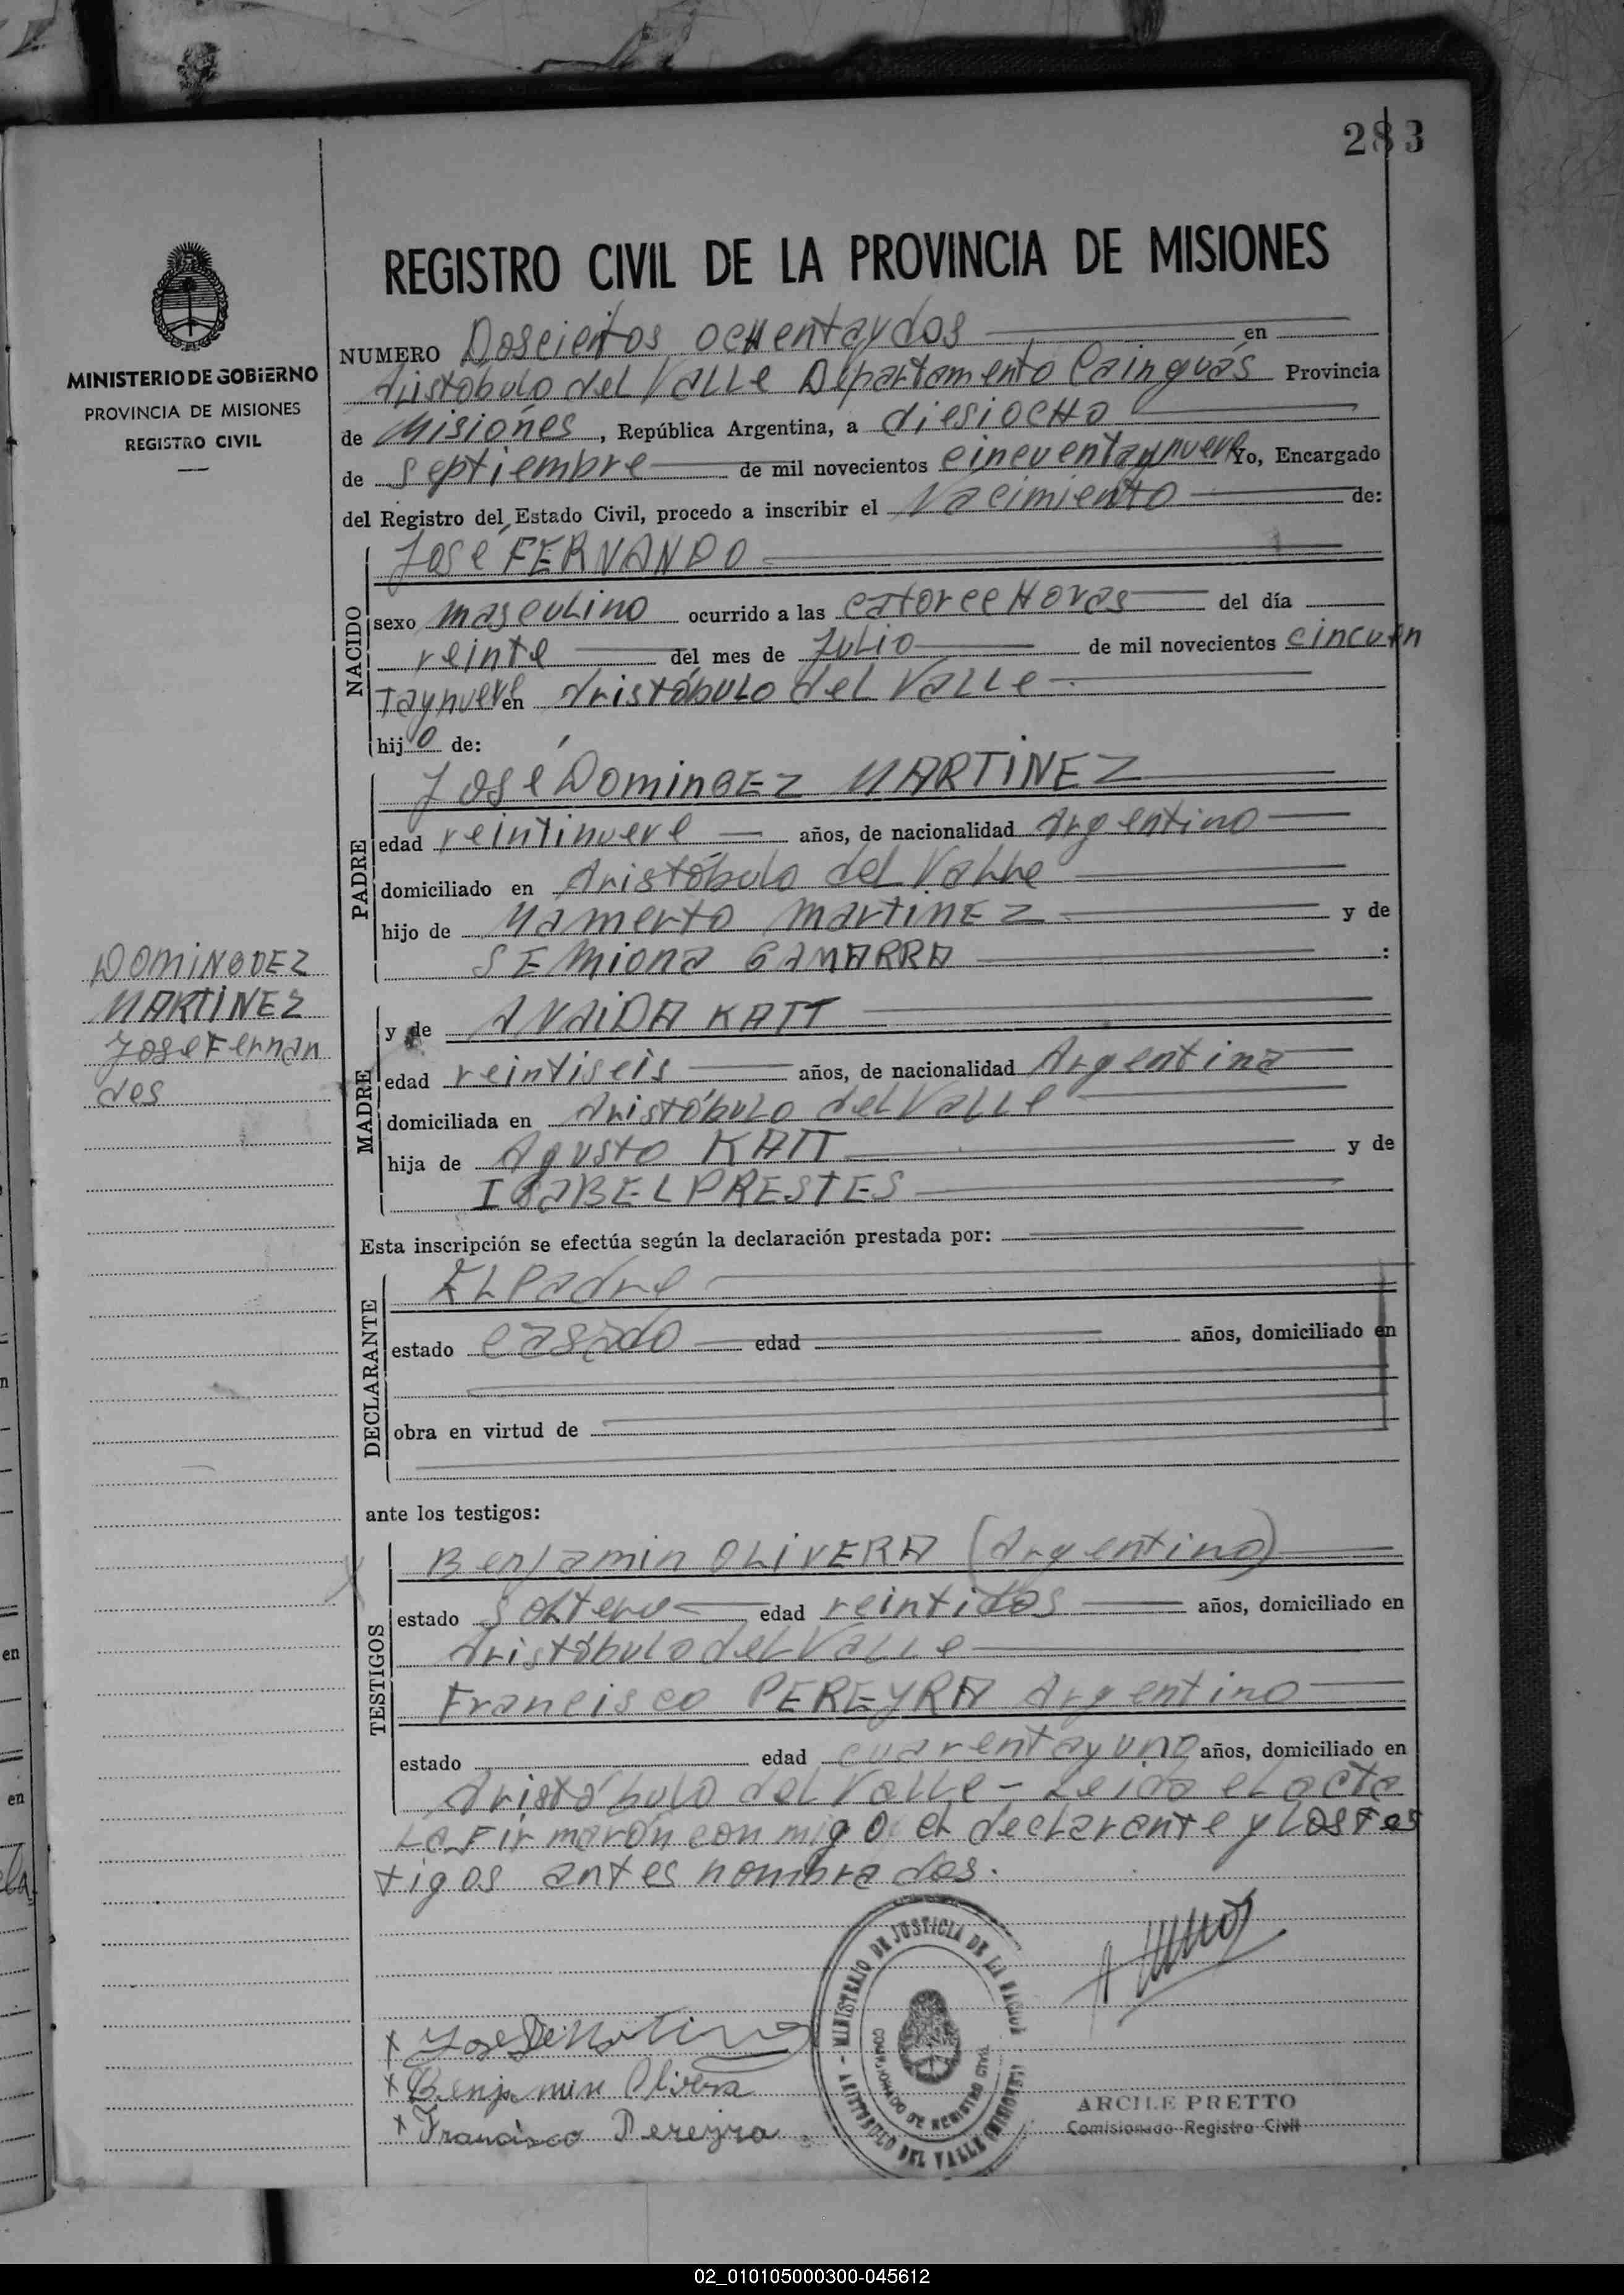 283
REGISTRO CIVIL DE LA PROVINCIA DE MISIONES
MINISTERIO DE GOBIERNO
PROVINCIA DE MISIONES
REGISTRO CIVIL
NUMERO Doscientos ochentaydos en
Aristóbulo del Valle Departamento Cainguás Provincia
de Misiónes, República Argentina, a diesiocho
de Septiembre de mil novecientos cincuentaynueve Yo, Encargado
del Registro del Estado Civil, procedo a inscribir el Nacimiento de:
NACIDO
José FERNANDO
sexo masculino ocurrido a las catorce Horas del día
veinte del mes de Julio de mil novecientos cincuen
taynueve en Aristóbulo del Valle
hijo de:
PADRE
José DominGEZ MARTINEZ
edad veintinueve años, de nacionalidad Argentino
domiciliado en Aristóbulo del Valle
hijo de Mamerto martinEZ y de
SEmiona GAMARRA :
DOMINGDEZ
MARTINEZ
Jose Fernan
des
MADRE
y de ANAIDA KATT
edad veintiseis años, de nacionalidad Argentina
domiciliada en Aristóbulo del Valle
hija de Agusto KATT y de
ISABEL PRESTES
Esta inscripción se efectúa según la declaración prestada por:
DECLARANTE
El Padre
estado casado edad años, domiciliado en
obra en virtud de
ante los testigos:
TESTIGOS
Benjamin OLIVERA (Argentino)
estado Soltero edad veintidos años, domiciliado en
Aristóbulo del Valle
Francisco PEREYRA Argentino
estado edad cuarentayuno años, domiciliado en
Aristóbulo del Valle - Leida el acta
La Firmarón con migo el declarante y Los tes
tigos antes nombrados.
MINISTERIO DE JUSTICIA DE LA NACION
COMISIONADO DE REGISTRO CIVIL
ARISTOBULO DEL VALLE (MISIONES)
x Benjamin Olivera
x Francisco Pereyra
ARCILE PRETTO
Comisionado Registro Civil
02_010105000300-045612